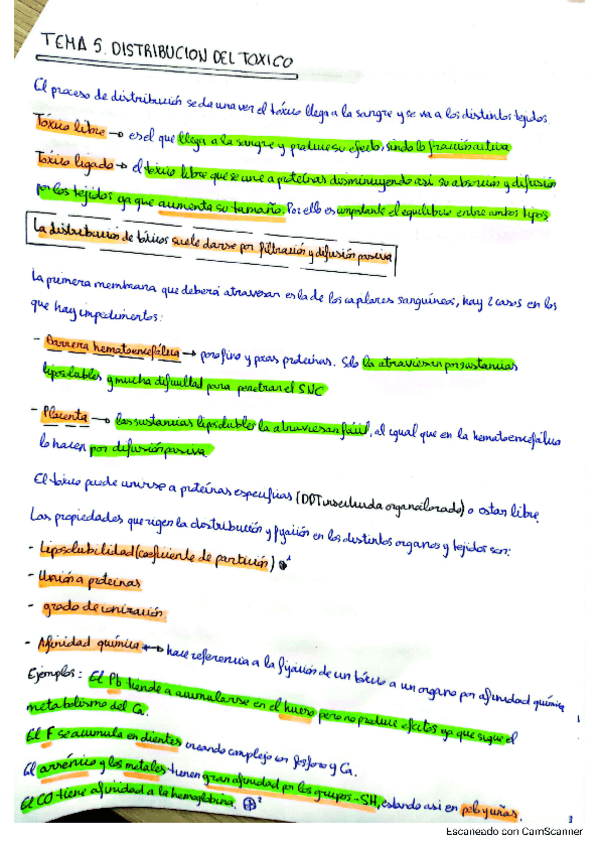 TEMA 5. DISTRIBUCION DEL TOXICO
El proceso de distribución se da una vez el tóxico llega a la sangre y se va a los distintos tejidos
Tóxico libre → es el que llega a la sangre y produce su efecto, siendo la fracción activa
Tóxico ligado → el tóxico libre que se une a proteínas disminuyendo así su absorción y difusión
por los tejidos ya que aumenta su tamaño. Por ello es importante el equilibrio entre ambos tipos
La distribución de tóxicos suele darse por filtración y difusión pasiva
La primera membrana que deberá atravesar es la de los capilares sanguíneos, hay 2 casos en los
que hay impedimentos:
- Barrera hematoencefálica → poro fino y pocas proteínas. Solo la atraviesan por sustancias
liposolubles y mucha dificultad para penetrar el SNC
- Placenta → las sustancias liposolubles la atraviesan fácil, al igual que en la hematoencefálica
lo hacen por difusión pasiva
El tóxico puede unirse a proteínas específicas (DDT insecticida organoclorado) o estar libre.
Las propiedades que rigen la distribución y fijación en los distintos organos y tejidos son:
- Liposolubilidad (coeficiente de partición) ⊕¹
- Unión a proteinas
- grado de ionización
- Afinidad química → hace referencia a la fijación de un tóxico a un organo por afinidad química
Ejemplos: El Pb tiende a acumularse en el hueso pero no produce efectos ya que sigue el
metabolismo del Ca.
El F se acumula en dientes creando complejo con fosforo y Ca.
El arsénico y los metales tienen gran afinidad por los grupos -SH, estando asi en pelo y uñas.
El CO tiene afinidad a la hemoglobina. ⊕²
3
Escaneado con CamScanner